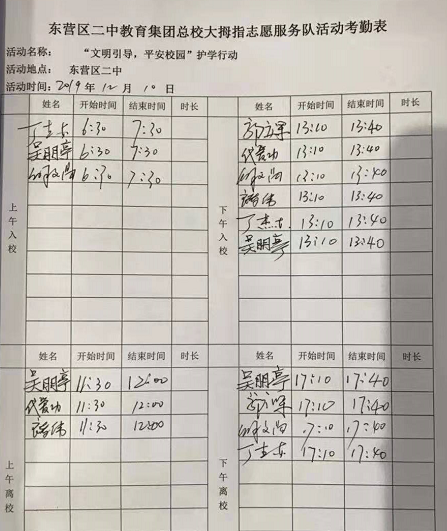 东营区二中教育集团总校大拇指志愿服务队活动考勤表
活动名称： “文明引导，平安校园”护学行动
活动地点： 东营区二中
活动时间：2019年12月10日
姓名 开始时间 结束时间 时长
上午入校
丁志东 6:30 7:30
吴明亭 6:30 7:30
6:30 7:30
姓名 开始时间 结束时间 时长
下午入校
13:10 13:40
代爱功 13:10 13:40
13:10 13:40
13:10 13:40
丁杰东 13:10 13:40
吴明亭 13:10 13:40
姓名 开始时间 结束时间 时长
上午离校
吴明亭 11:30 12:00
代爱功 11:30 12:00
11:30 12:00
姓名 开始时间 结束时间 时长
下午离校
吴明亭 17:10 17:40
17:10 17:40
17:10 17:40
丁志东 17:10 17:40